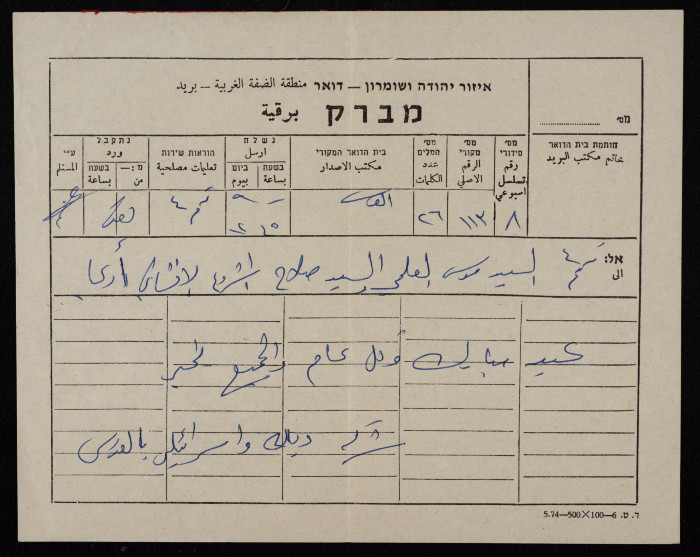 איזור יהודה ושומרון – דואר منطقة الضفة الغربية – بريد
מברק برقية
מס׳
חותמת בית הדואר
خاتم مكتب البريد
מס׳ סידורי رقم تسلسل اسبوعي
מס׳ מקורי الرقم الاصلي
מס׳ המלים عدد الكلمات
בית הדואר המקורי مكتب الاصدار
נשלח ارسل
ביום بيوم
בשעה بساعة
הוראות שירות تعليمات مصلحية
נתקבל ورد
מ:— من
בשעה بساعة
ע״י المستلم
٨ ١١٣ ٢٦ القدس
אל: الى
السيد موسى العلمي السيد صلاح
عيد مبارك وكل عام والجميع بخير
بالقدس
ד. ט. 6—100×500—5.74